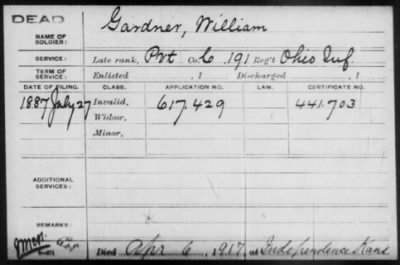 DEAD
Gardner, William
NAME OF SOLDIER:
SERVICE: Late rank, Pvt Co. C, 191 Reg't Ohio Inf.
TERM OF SERVICE: Enlisted , 1 Discharged , 1
DATE OF FILING. CLASS. APPLICATION NO. LAW. CERTIFICATE NO.
1887 July 27 Invalid, 617.429 441.703
Widow,
Minor,
ADDITIONAL SERVICES:
REMARKS:
Died Apr 6, 1917, at Independence Kans